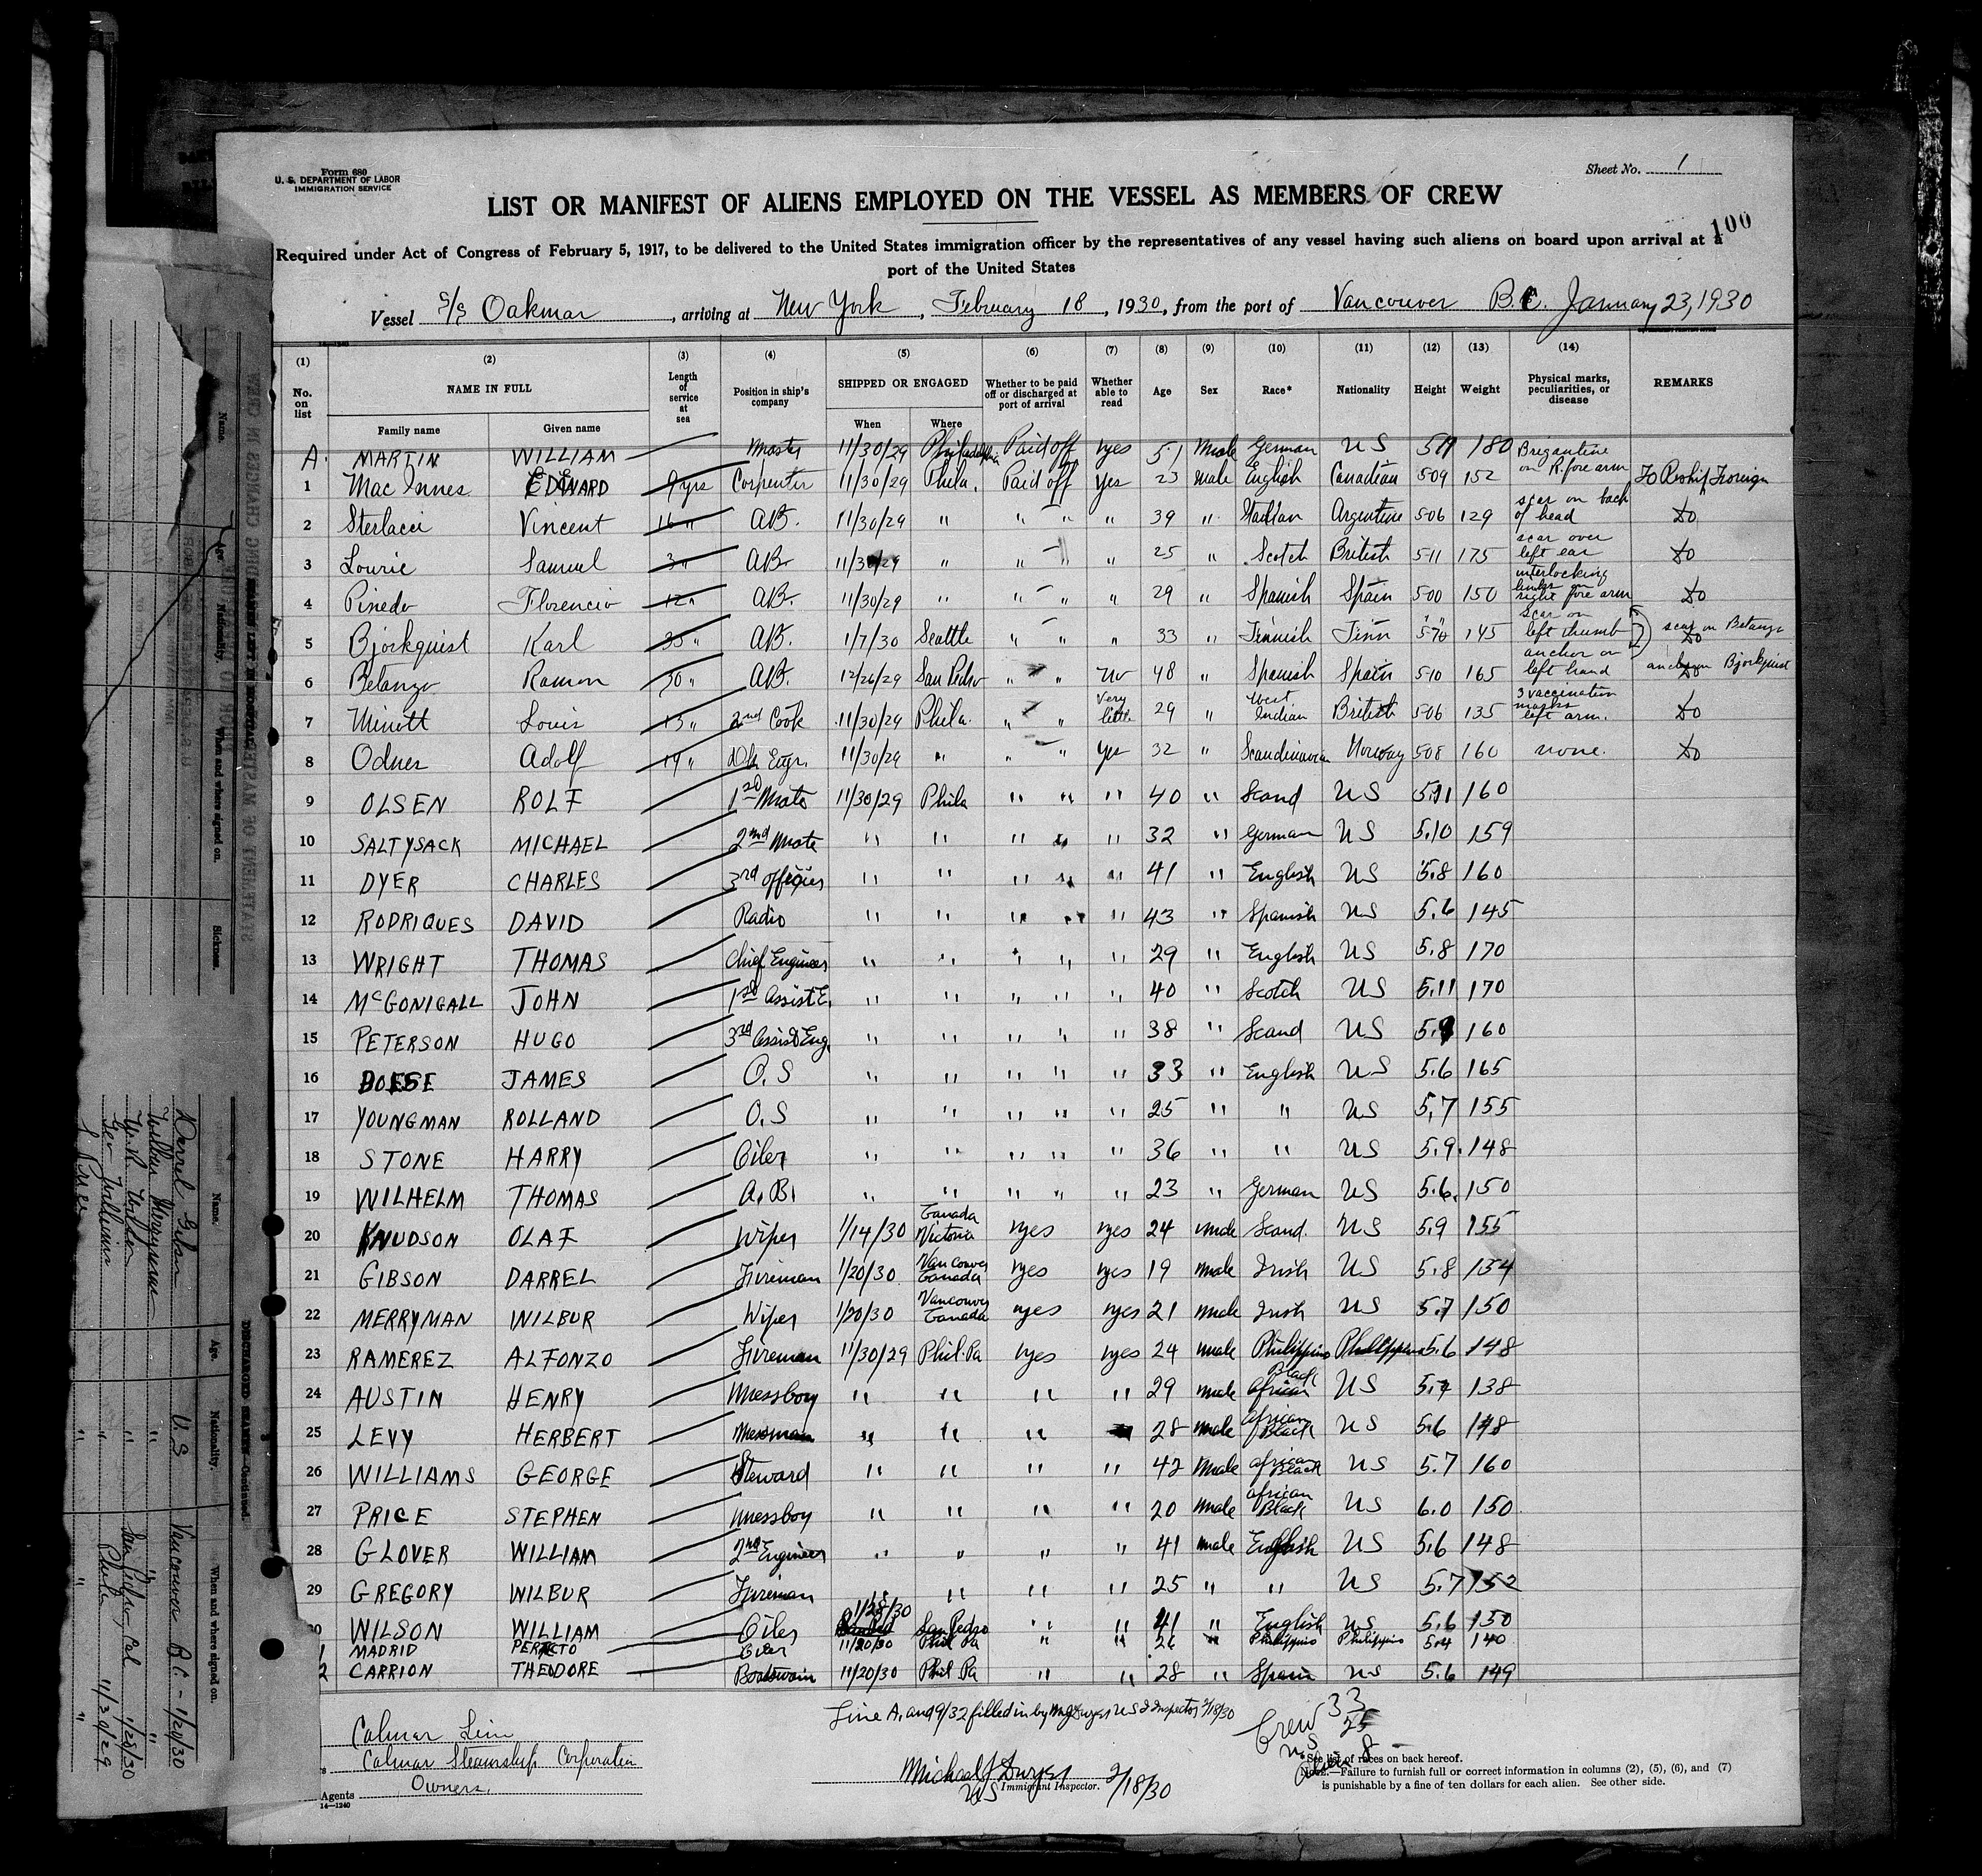 Form 680
U. S. DEPARTMENT OF LABOR
IMMIGRATION SERVICE
Sheet No. 1
LIST OR MANIFEST OF ALIENS EMPLOYED ON THE VESSEL AS MEMBERS OF CREW
100
Required under Act of Congress of February 5, 1917, to be delivered to the United States immigration officer by the representatives of any vessel having such aliens on board upon arrival at a
port of the United States
Vessel S/S Oakmar, arriving at New York, February 18, 1930, from the port of Vancouver B.C. January 23, 1930
(1) (2) (3) (4) (5) (6) (7) (8) (9) (10) (11) (12) (13) (14)
No. on list NAME IN FULL Length of service at sea Position in ship's company SHIPPED OR ENGAGED Whether to be paid off or discharged at port of arrival Whether able to read Age Sex Race* Nationality Height Weight Physical marks, peculiarities, or disease REMARKS
Family name Given name When Where
A. MARTIN WILLIAM Master 11/30/29 Philadelphia Paid off yes 51 Male German US 5 11 180 Brigantine on R. fore arm
1 Mac Innes EDWARD 9 yrs Carpenter 11/30/29 Phila. Paid off yes 23 male English Canadian 509 152 To Reship Foreign
2 Sterlacci Vincent 16 " AB. 11/30/29 " " " " 39 " Italian Argentine 506 129 scar on back of head Do
3 Lourie Samuel 3 " AB. 11/30/29 " " " " 25 " Scotch British 511 175 scar over left ear Do
4 Pinedo Florencio 12 " AB. 11/30/29 " " " " 29 " Spanish Spain 500 150 interlocking links on right fore arm Do
5 Bjorkquist Karl 35 " AB. 1/7/30 Seattle " " " 33 " Finnish Finn 570 145 scar on left thumb scar on Betanzo Do
6 Betanzo Ramon 30 " AB. 12/26/29 San Pedro " " no 48 " Spanish Spain 510 165 anchor on left hand anchor on Bjorkquist Do
7 Minott Louis 13 " 2nd Cook 11/30/29 Phila. " " Very little 29 " West Indian British 506 135 3 vaccination marks left arm. Do
8 Odner Adolf 19 " Dk Engr. 11/30/29 " " " yes 32 " Scandinavian Norway 508 160 none. Do
9 OLSEN ROLF 1st Mate 11/30/29 Phila " " " 40 " Scand US 5.11 160
10 SALTYSACK MICHAEL 2nd Mate " " " " " 32 " German US 5.10 159
11 DYER CHARLES 3rd officer " " " " " 41 " English US 5.8 160
12 RODRIQUES DAVID Radio " " " " " 43 " Spanish US 5.6 145
13 WRIGHT THOMAS Chief Engineer " " " " " 29 " English US 5.8 170
14 McGONIGALL JOHN 1st Assist E. " " " " " 40 " Scotch US 5.11 170
15 PETERSON HUGO 3rd Assist Eng. " " " " " 38 " Scand US 5.9 160
16 JAMES O. S " " " " " 33 " English US 5.6 165
17 YOUNGMAN ROLLAND O. S " " " " " 25 " " US 5.7 155
18 STONE HARRY Oiler " " " " " 36 " " US 5.9. 148
19 WILHELM THOMAS A. B. " " " " " 23 " German US 5.6. 150
20 KNUDSON OLAF Wiper 1/14/30 Canada Victoria yes yes 24 male Scand. US 5.9 155
21 GIBSON DARREL Fireman 1/20/30 Vancouver Canada yes yes 19 male Irish US 5.8 134
22 MERRYMAN WILBUR Wiper 1/20/30 Vancouver Canada yes yes 21 male Irish US 5.7 150
23 RAMEREZ ALFONZO Fireman 11/30/29 Phil. Pa yes yes 24 male Philippino Philippino 5.6 148
24 AUSTIN HENRY Messboy " " " " 29 male Black African US 5.7 138
25 LEVY HERBERT Messman " " " 28 male African Black US 5.6 148
26 WILLIAMS GEORGE Steward " " " " 42 Male African Black US 5.7 160
27 PRICE STEPHEN messboy " " " " 20 male African Black US 6.0 150
28 GLOVER WILLIAM 2nd Engineer " " " " 41 male English US 5.6 148
29 GREGORY WILBUR Fireman " " " 25 " " US 5.7 152
30 WILSON WILLIAM Oiler 1/28/30 San Pedro " " 41 " English US 5.6 150
1 MADRID PERFECTO Oiler 11/20/30 Phil Pa " " 26 " Philippino Philippino 5.4 140
2 CARRION THEODORE Boatswain 11/20/30 Phil. Pa " " 28 " Spain US 5.6 149
Line A, and 9/32 filled in by M J Dwyer US I Inspector 2/18/30
Crew 33
US 25
Alien 8
Calmar Line
Calmar Steamship Corporation
Owners.
Agents
14—1240
Michael J Dwyer
US Immigrant Inspector. 2/18/30
*See list of races on back hereof.
NOTE.—Failure to furnish full or correct information in columns (2), (5), (6), and (7)
is punishable by a fine of ten dollars for each alien. See other side.
Name. Age. Nationality. When and where signed on. Sickness.
DISCHARGED SEAMEN—Continued.
Name. Age. Nationality. When and where signed on.
Darrel Gibson U.S Vancouver B.C - 1/20/30
Wilbur Merryman " " "
W. R. Wilson " San Pedro, Cal 1/28/30
Geo Williams " Phila 11/30/29
S. Price " " "